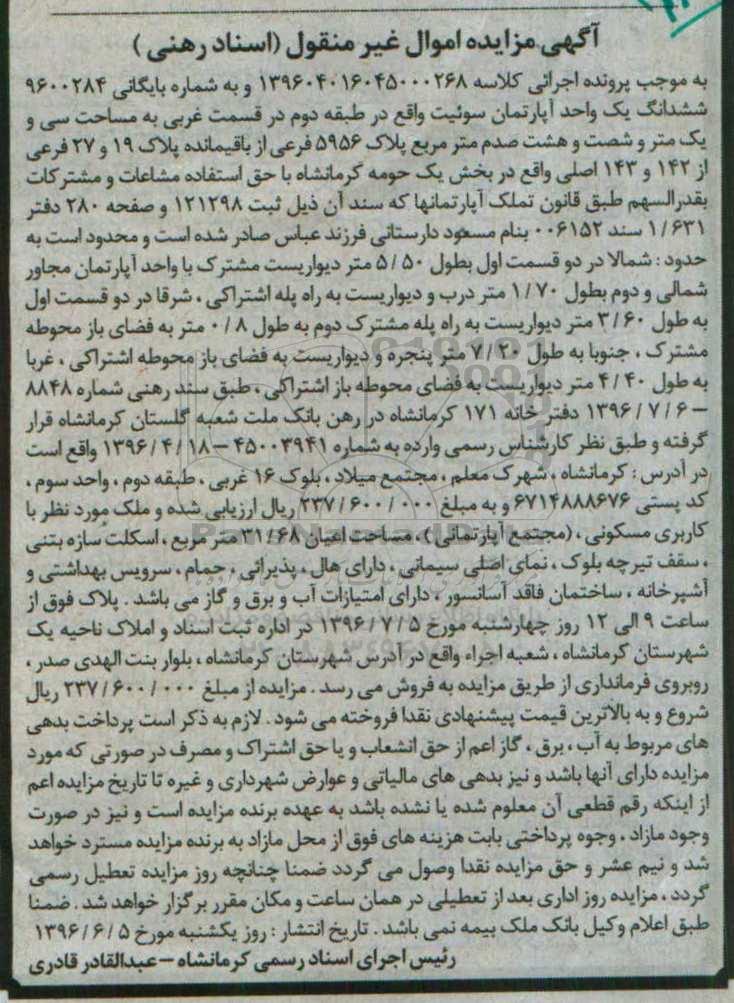 آگهی مزایده اموال غیر منقول (اسناد رهنی)
به موجب پرونده اجرائی کلاسه ۱۳۹۶۰۴۰۱۶۰۴۵۰۰۰۲۶۸ و به شماره بایگانی ۹۶۰۰۲۸۴
ششدانگ یک واحد آپارتمان سوئیت واقع در طبقه دوم در قسمت غربی به مساحت سی و
یک متر و شصت و هشت صدم متر مربع پلاک ۵۹۵۶ فرعی از باقیمانده پلاک ۱۹ و ۲۷ فرعی
از ۱۴۲ و ۱۴۳ اصلی واقع در بخش یک حومه کرمانشاه با حق استفاده مشاعات و مشترکات
بقدرالسهم طبق قانون تملک آپارتمانها که سند آن ذیل ثبت ۱۲۱۲۹۸ و صفحه ۲۸۰ دفتر
۱/۶۳۱ سند ۰۰۶۱۵۲ بنام مسعود دارستانی فرزند عباس صادر شده است و محدود است به
حدود : شمالا در دو قسمت اول بطول ۵/۵۰ متر دیواریست مشترک با واحد آپارتمان مجاور
شمالی و دوم بطول ۱/۷۰ متر درب و دیواریست به راه پله اشتراکی ، شرقا در دو قسمت اول
به طول ۳/۶۰ متر دیواریست به راه پله مشترک دوم به طول ۰/۸ متر به فضای باز محوطه
مشترک ، جنوبا به طول ۷/۲۰ متر پنجره و دیواریست به فضای باز محوطه اشتراکی ، غربا
به طول ۴/۴۰ متر دیواریست به فضای محوطه باز اشتراکی ، طبق سند رهنی شماره ۸۸۴۸
– ۱۳۹۶/۷/۶ دفتر خانه ۱۷۱ کرمانشاه در رهن بانک ملت شعبه گلستان کرمانشاه قرار
گرفته و طبق نظر کارشناس رسمی وارده به شماره ۴۵۰۰۳۹۴۱ – ۱۳۹۶/۴/۱۸ واقع است
در آدرس : کرمانشاه ، شهرک معلم ، مجتمع میلاد ، بلوک ۱۶ غربی ، طبقه دوم ، واحد سوم ،
کد پستی ۶۷۱۴۸۸۸۶۷۶ و به مبلغ ۲۳۷/۶۰۰/۰۰۰ ریال ارزیابی شده و ملک مورد نظر با
کاربری مسکونی ، (مجتمع آپارتمانی) ، مساحت اعیان ۳۱/۶۸ متر مربع ، اسکلت سازه بتنی
، سقف تیرچه بلوک ، نمای اصلی سیمانی ، دارای هال ، پذیرائی ، حمام ، سرویس بهداشتی و
آشپرخانه ، ساختمان فاقد آسانسور ، دارای امتیازات آب و برق و گاز می باشد . پلاک فوق از
ساعت ۹ الی ۱۲ روز چهارشنبه مورخ ۱۳۹۶/۷/۵ در اداره ثبت اسناد و املاک ناحیه یک
شهرستان کرمانشاه ، شعبه اجراء واقع در آدرس شهرستان کرمانشاه ، بلوار بنت الهدی صدر ،
روبروی فرمانداری از طریق مزایده به فروش می رسد . مزایده از مبلغ ۲۳۷/۶۰۰/۰۰۰ ریال
شروع و به بالاترین قیمت پیشنهادی نقدا فروخته می شود . لازم به ذکر است پرداخت بدهی
های مربوط به آب ، برق ، گاز اعم از حق انشعاب و یا حق اشتراک و مصرف در صورتی که مورد
مزایده دارای آنها باشد و نیز بدهی های مالیاتی و عوارض شهرداری و غیره تا تاریخ مزایده اعم
از اینکه رقم قطعی آن معلوم شده یا نشده باشد به عهده برنده مزایده است و نیز در صورت
وجود مازاد ، وجوه پرداختی بابت هزینه های فوق از محل مازاد به برنده مزایده مسترد خواهد
شد و نیم عشر و حق مزایده نقدا وصول می گردد ضمنا چنانچه روز مزایده تعطیل رسمی
گردد ، مزایده روز اداری بعد از تعطیلی در همان ساعت و مکان مقرر برگزار خواهد شد . ضمنا
طبق اعلام وکیل بانک ملک بیمه نمی باشد . تاریخ انتشار : روز یکشنبه مورخ ۱۳۹۶/۶/۵
رئیس اجرای اسناد رسمی کرمانشاه – عبدالقادر قادری